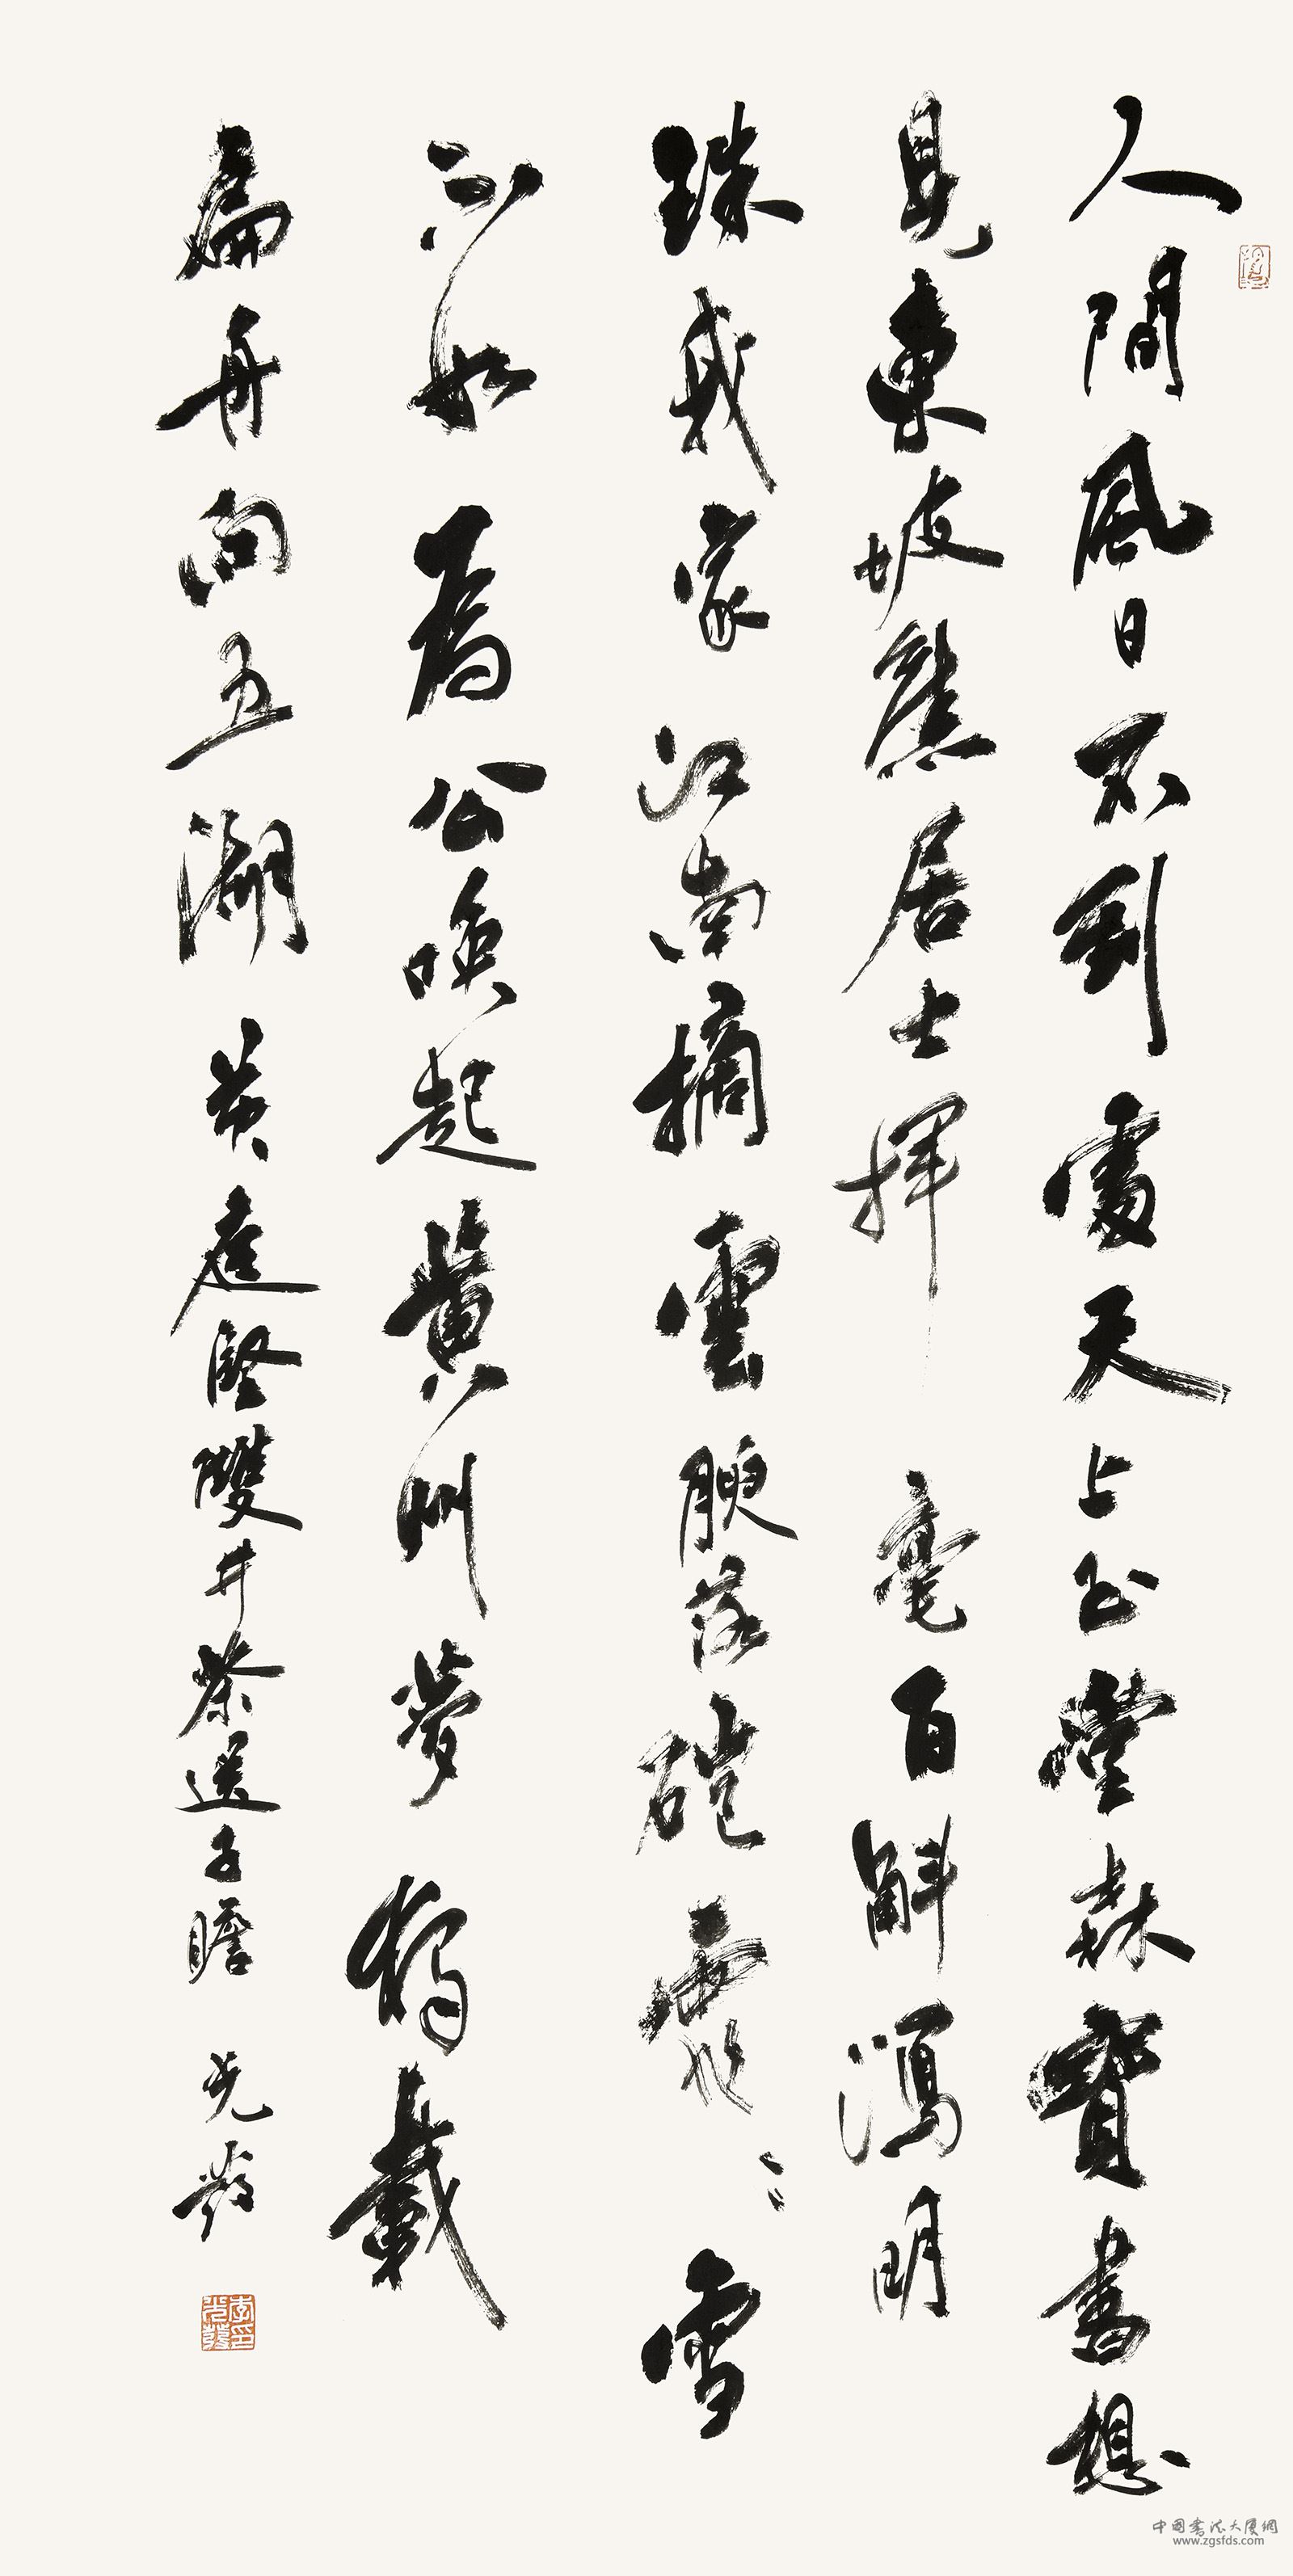 人間風日不到處天上玉堂森寶書想
見東坡舊居士揮毫百斛瀉明
珠我家江南摘雲腴落磑霏〻雪
不如為公喚起黃州夢獨載
扁舟向五湖 黃庭堅雙井茶送子瞻 光
中国书法大厦網
www.zgsfds.com